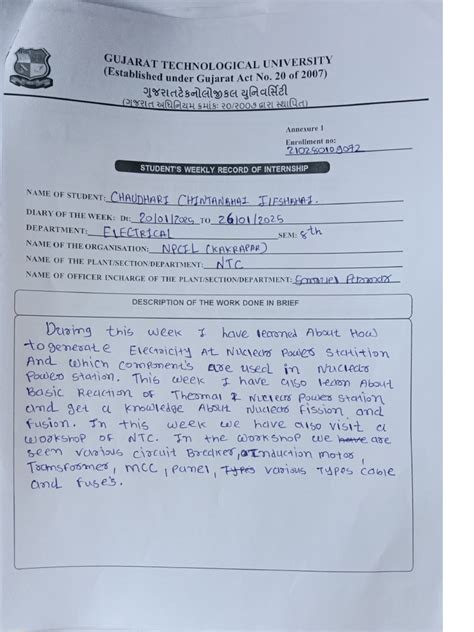 GUJARAT TECHNOLOGICAL UNIVERSITY
(Established under Gujarat Act No. 20 of 2007)
ગુજરાત ટેકનોલોજીકલ યુનિવર્સિટી
(ગુજરાત અધિનિયમ ક્રમાંકઃ ૨૦/૨૦૦૭ દ્વારા સ્થાપિત)
Annexure 1
Enrollment no:
210250109092
STUDENT'S WEEKLY RECORD OF INTERNSHIP
NAME OF STUDENT: CHAUDHARI CHINTANBHAI
DIARY OF THE WEEK: Dt: 20/01/2025 TO 26/01/2025
DEPARTMENT: ELECTRICAL SEM: 8th
NAME OF THE ORGANISATION: NPCIL (KAKRAPAR)
NAME OF THE PLANT/SECTION/DEPARTMENT: NTC
NAME OF OFFICER INCHARGE OF THE PLANT/SECTION/DEPARTMENT:
DESCRIPTION OF THE WORK DONE IN BRIEF
During this week I have learned About How
to generate Electricity At Nuclear Power Statition
And which components are used in Nuclear
Power station. This week I have also learn About
Basic Reaction of Thermal & Nuclear Power station
and get a knowledge About Nuclear fission and
fusion. In this week we have also visit a
workshop of NTC. In the workshop we have are
seen various circuit Breaker, Induction motor,
Transformer, MCC, panel, Types various Types cable
and fuses.